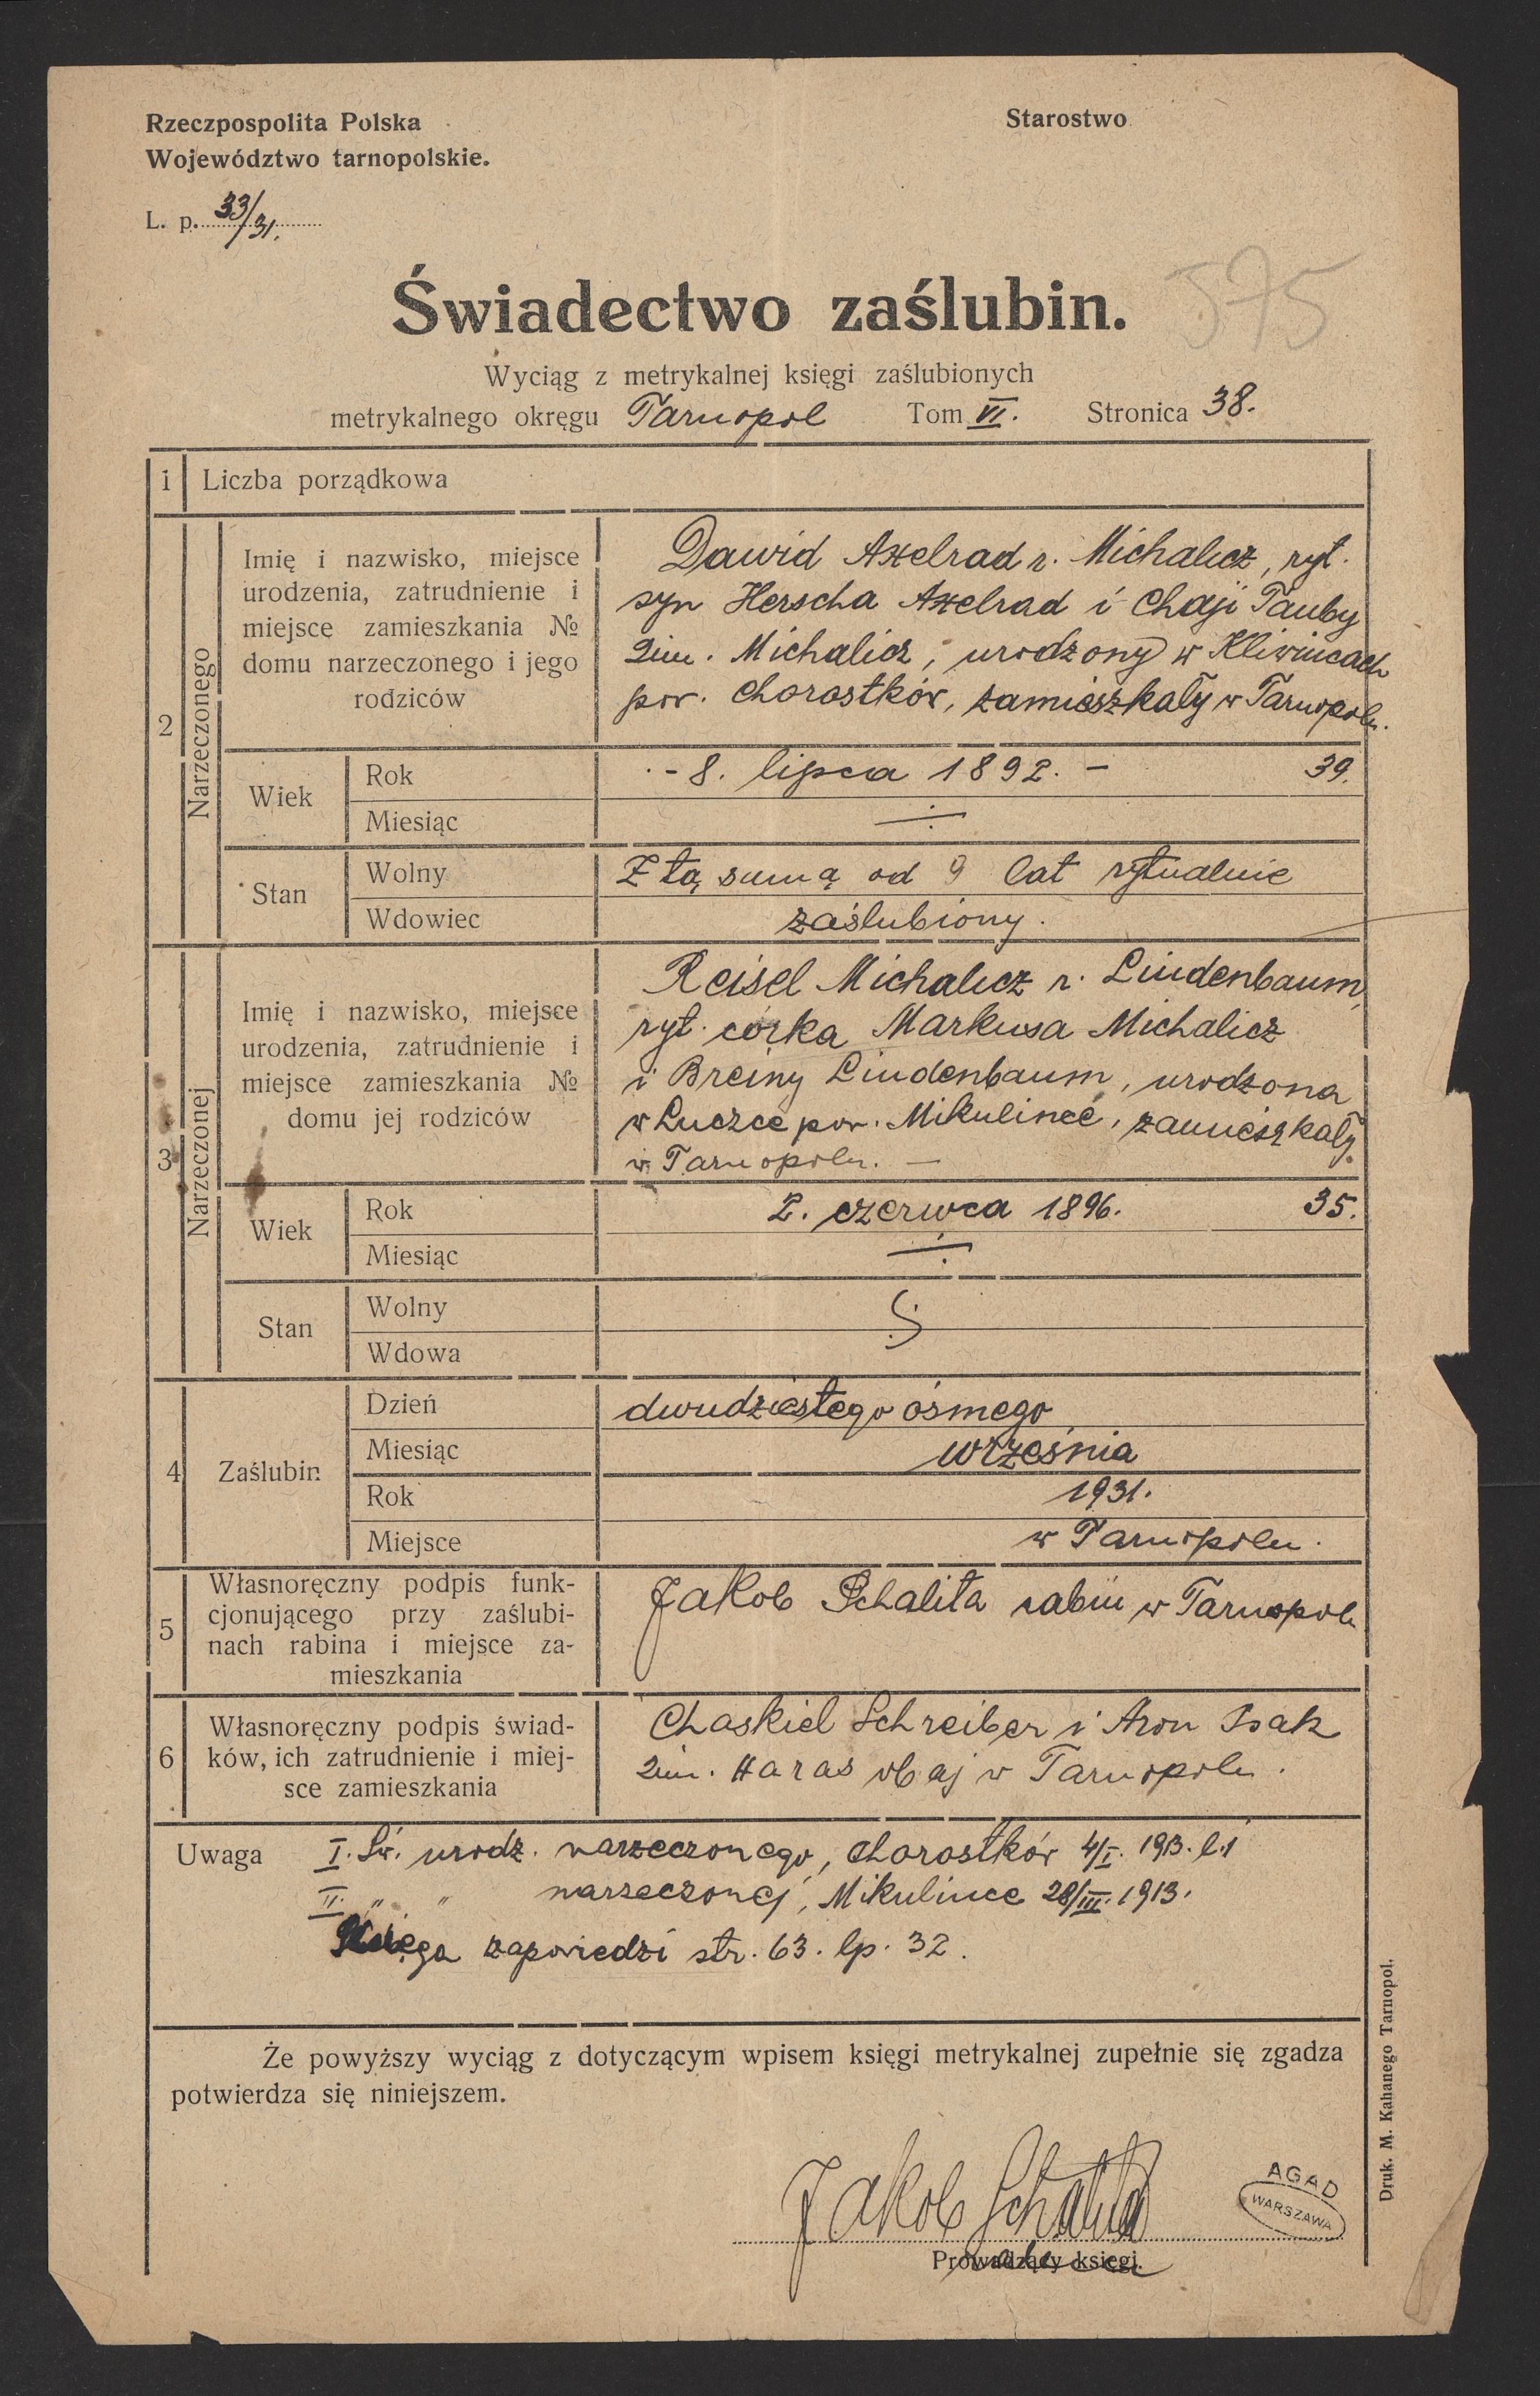 Rzeczpospolita Polska
Starostwo
Województwo tarnopolskie.
L. p. 33/31.
575
Świadectwo zaślubin.
Wyciąg z metrykalnej księgi zaślubionych
metrykalnego okręgu Tarnopol Tom VI. Stronica 38.
1 Liczba porządkowa
2 Narzeczonego
Imię i nazwisko, miejsce
urodzenia, zatrudnienie i
miejsce zamieszkania №
domu narzeczonego i jego
rodziców
Dawid Axelrad r. Michalicz, ryt.
syn Herscha Axelrad i Chaji Tauby
2im. Michalicz, urodzony w Kliwincach
pow. Chorostków, zamieszkały w Tarnopolu.
Wiek Rok - 8. lipca 1892. - 39.
Miesiąc
Stan Wolny Z tą samą od 9 lat rytualnie
Wdowiec zaślubiony.
3 Narzeczonej
Imię i nazwisko, miejsce
urodzenia, zatrudnienie i
miejsce zamieszkania №
domu jej rodziców
Reisel Michalicz r. Lindenbaum,
ryt. córka Markusa Michalicz
i Breiny Lindenbaum, urodzona
w Łuczce pow. Mikulińce, zamieszkały
w Tarnopolu. —
Wiek Rok 2. czerwca 1896. 35.
Miesiąc
Stan Wolny
Wdowa
4 Zaślubin Dzień dwudziestego ósmego
Miesiąc września
Rok 1931.
Miejsce w Tarnopolu.
5 Własnoręczny podpis funk-
cjonującego przy zaślubi-
nach rabina i miejsce za-
mieszkania
Jakob Schalita rabin w Tarnopolu
6 Własnoręczny podpis świad-
ków, ich zatrudnienie i miej-
sce zamieszkania
Chaskiel Schreiber i Aron Isak
2im. Haras obaj w Tarnopolu.
Uwaga I. Św. urodz. narzeczonego, Chorostków 4/I. 1913. l.1
II. " " narzeczonej, Mikulince 28/III. 1913.
Księga zapowiedzi str. 63. lp. 32.
Że powyższy wyciąg z dotyczącym wpisem księgi metrykalnej zupełnie się zgadza
potwierdza się niniejszem.
Jakob Schalita
Prowadzący księgi.
AGAD
WARSZAWA
Druk. M. Kahanego Tarnopol.